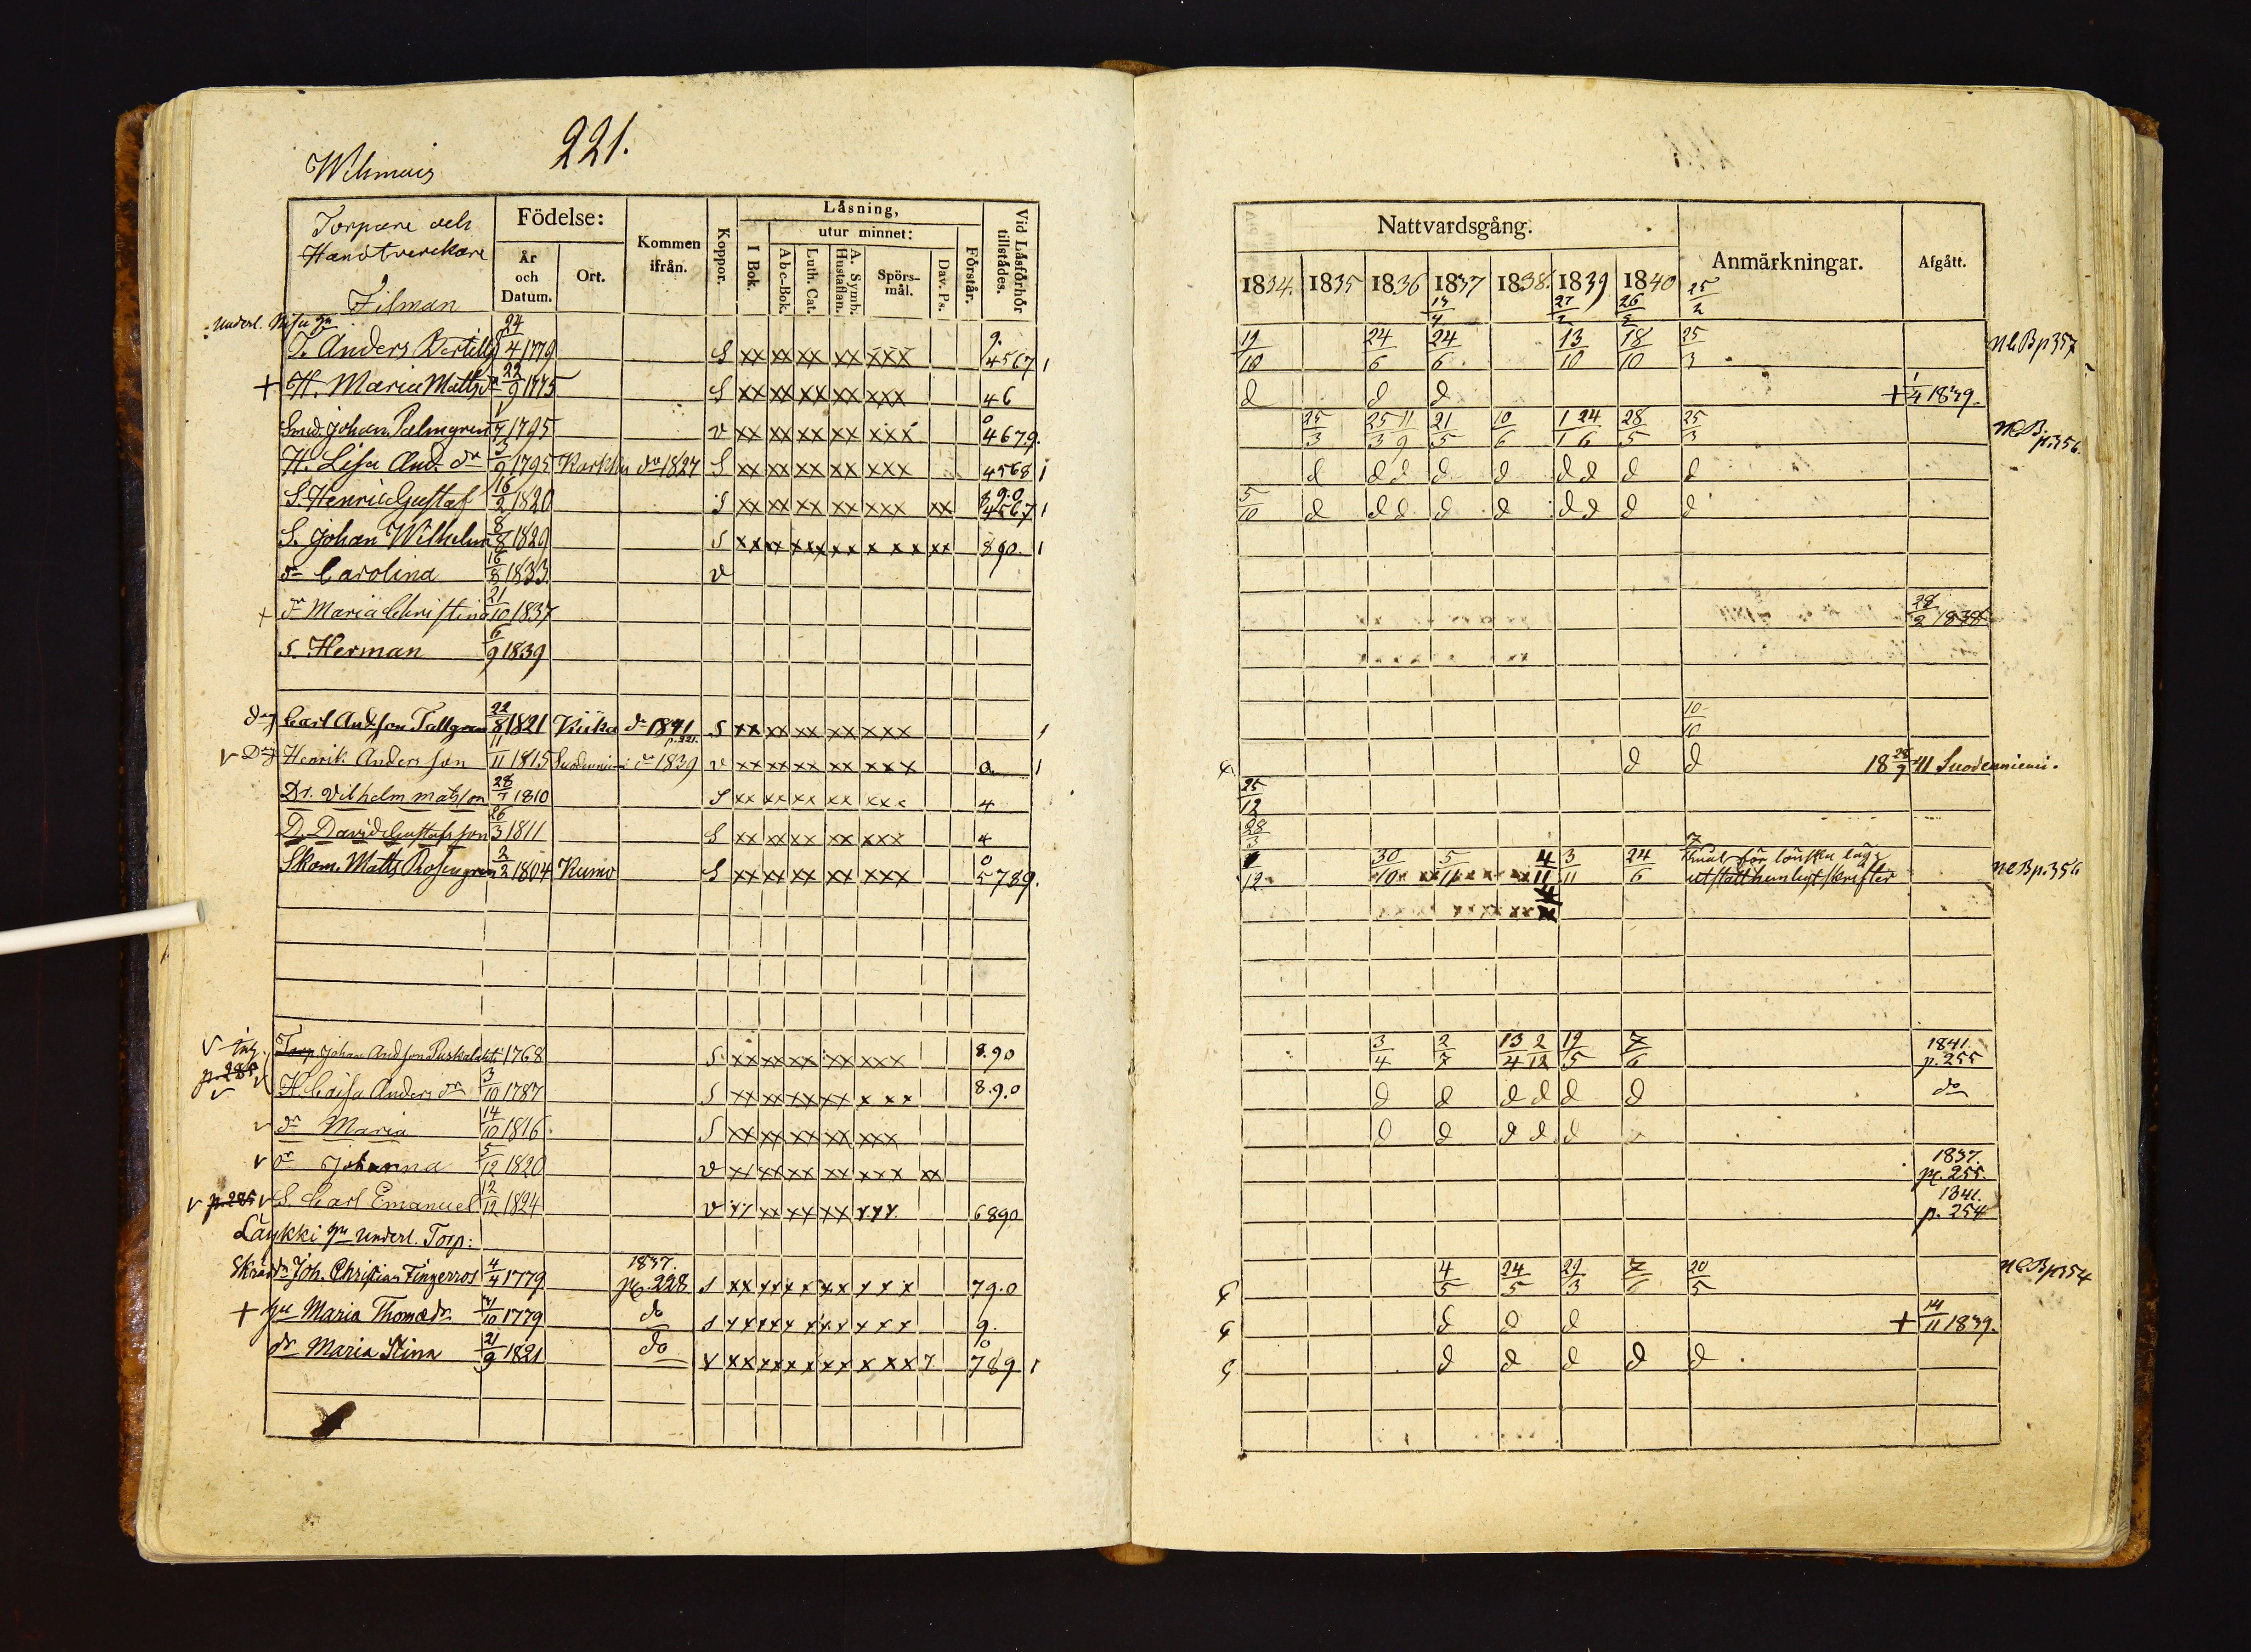 221.
Torpare och
Handtverckare
Filman
Födelse:
År
och
Datum.
Ort.
Kommen
ifrån.
Koppor.
Läsning,
utur minnet:
I Bok.
Abc-Bok.
Luth. Cat.
A. Symb.
Hustaflan.
Spörs-
mål.
Dav. Ps.
Förstår.
Vid Läsförhör
tillstådes.
Underl.
T. Anders Bertills 24/4 1779 S xx xx xx xx xxx 9. 4567 1
+ H. Maria Matts dr 22/9 1775 S xx xx xx xx xxx 46
Smed. Johan Palmgren 1795 v xx xx xx xx xxx 0 4679.
H. Lisa And. dr 3/9 1795 Karkku dr 1827 S xx xx xx xx xxx 4568 1
S. Henric Gustaf 16/2 1820 S xx xx xx xx xxx xx 89.0 4567 1
S. Johan Wilhelm 8/8 1829 S xx xx xxx xx xxx xx 890. 1
dr Carolina 16/8 1833. v
+ dr Maria Christina 21/10 1837
S. Herman 6/9 1839
Carl Andsson Tallgren 22/8 1821 Kiika dr 1841 p. 221. S xx xx xx xx xxx 1
v Dg Henrik Andersson 11/11 1815 Suodenniemi dr 1839 v xx xx xx xx xxx 0. 1
Dr. Vilhelm Matsson 28/7 1810 S xx xx xx xx xxx 4
D. David Gustafsson 26/3 1811 S xx xx xx xx xxx 4
Skom. Matts Rosengren 2/2 1804 Kumo S xx xx xx xx xxx 0 5789.
Torp. Johan Andsson 1768 S xx xx xx xx xxx 8.90
p. 285 H. Caisa Anders dr 3/10 1787 S xx xx xx xx xxx 8.9.0
v dr Maria 14/10 1816 S xx xx xx xx xxx
v dr Johanna 5/12 1820 v xx xx xx xx xxx xx
v p. 285 v S. Carl Emanuel 12/12 1824 v xx xx xx xx xxx 6890
Laukki gn underl. Torp:
Skrädr Joh. Christian Fingerroos 4/4 1779 1837. pg. 228 S xx xx xx xx xxx 79.0
+ hu Maria Thomædr 10 1779 do S xx xx xx xx xxx 9.
dr Maria Stina 21/9 1821 do v xx xx xx xx xxx 7 10 789 1
Nattvardsgång.
Anmärkningar.
Afgått.
1834. 1835 1836 1837 1838. 1839 1840
27/2 26/2 25/2
19/10 24/6 24/6 13/10 18/10 25/3 NCBp357
d d d + 1/4 1839.
25/3 25/3 11/9 21/5 10/6 1/1 24/6 28/5 25/3 NCB. p. 356.
d d d d d d d d d
5/10 d d d d d d d d d
28/2 1838
10/10
d d 18 28/9 41 Suodenniemi.
25/12
28/3
12 30/10 5/11 4/11 3/11 24/6 NCBp. 356
3/4 2/7 13/4 2/12 19/5 7/6 1841. p. 255
d d d d d d do
d d d d d
1837. pg. 255.
1841. p. 254
4/5 24/5 29/3 7/6 20/5 NCBp354
d d d + 14/11 1839.
d d d d d